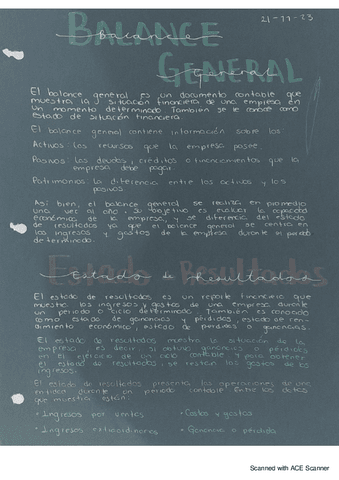 21-11-23
BALANCE
Balance
GENERAL
General
El balance general es un documento contable que
muestra la situación financiera de una empresa en
un momento determinado. También se le conoce como
estado de situación financiera.
El balance general contiene información sobre los:
Activos: Los recursos que la empresa posee.
Pasivos: Las deudas, créditos o financiamientos que la
empresa debe pagar.
Patrimonios: La diferencia entre los activos y los
pasivos.
Así bien, el balance general se realiza en promedio
una vez al año. Su objetivo es evaluar la capacidad
económica de la empresa, y se diferencia del estado
de resultados ya que el balance general se centra en
los ingresos y gastos de la empresa durante el periodo
determinado.
Estado de Resultados
Estado de Resultados
El estado de resultados es un reporte financiero que
muestra los ingresos y gastos de una empresa durante
un periodo o ciclo determinado. También es conocido
como estado de ganancias y pérdidas, estado de ren-
dimiento económico, estado de pérdidas o ganancias.
El estado de resultados muestra la situación de la
empresa, es decir si obtuvo ganancias o pérdidas
en el ejercicio de un ciclo contable y para obtener
el estado de resultados, se restan los gastos de los
ingresos.
El estado de resultados presenta las operaciones de una
entidad durante un periodo contable. Entre los datos
que muestra están:
• Ingresos por ventas • Costos y gastos
• Ingresos extraordinarios • Ganancia o pérdida
Scanned with ACE Scanner